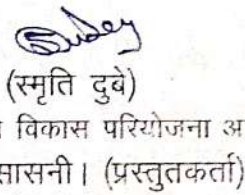 Dubey
(स्मृति दुबे)
विकास परियोजना अ
सासनी। (प्रस्तुतकर्ता)